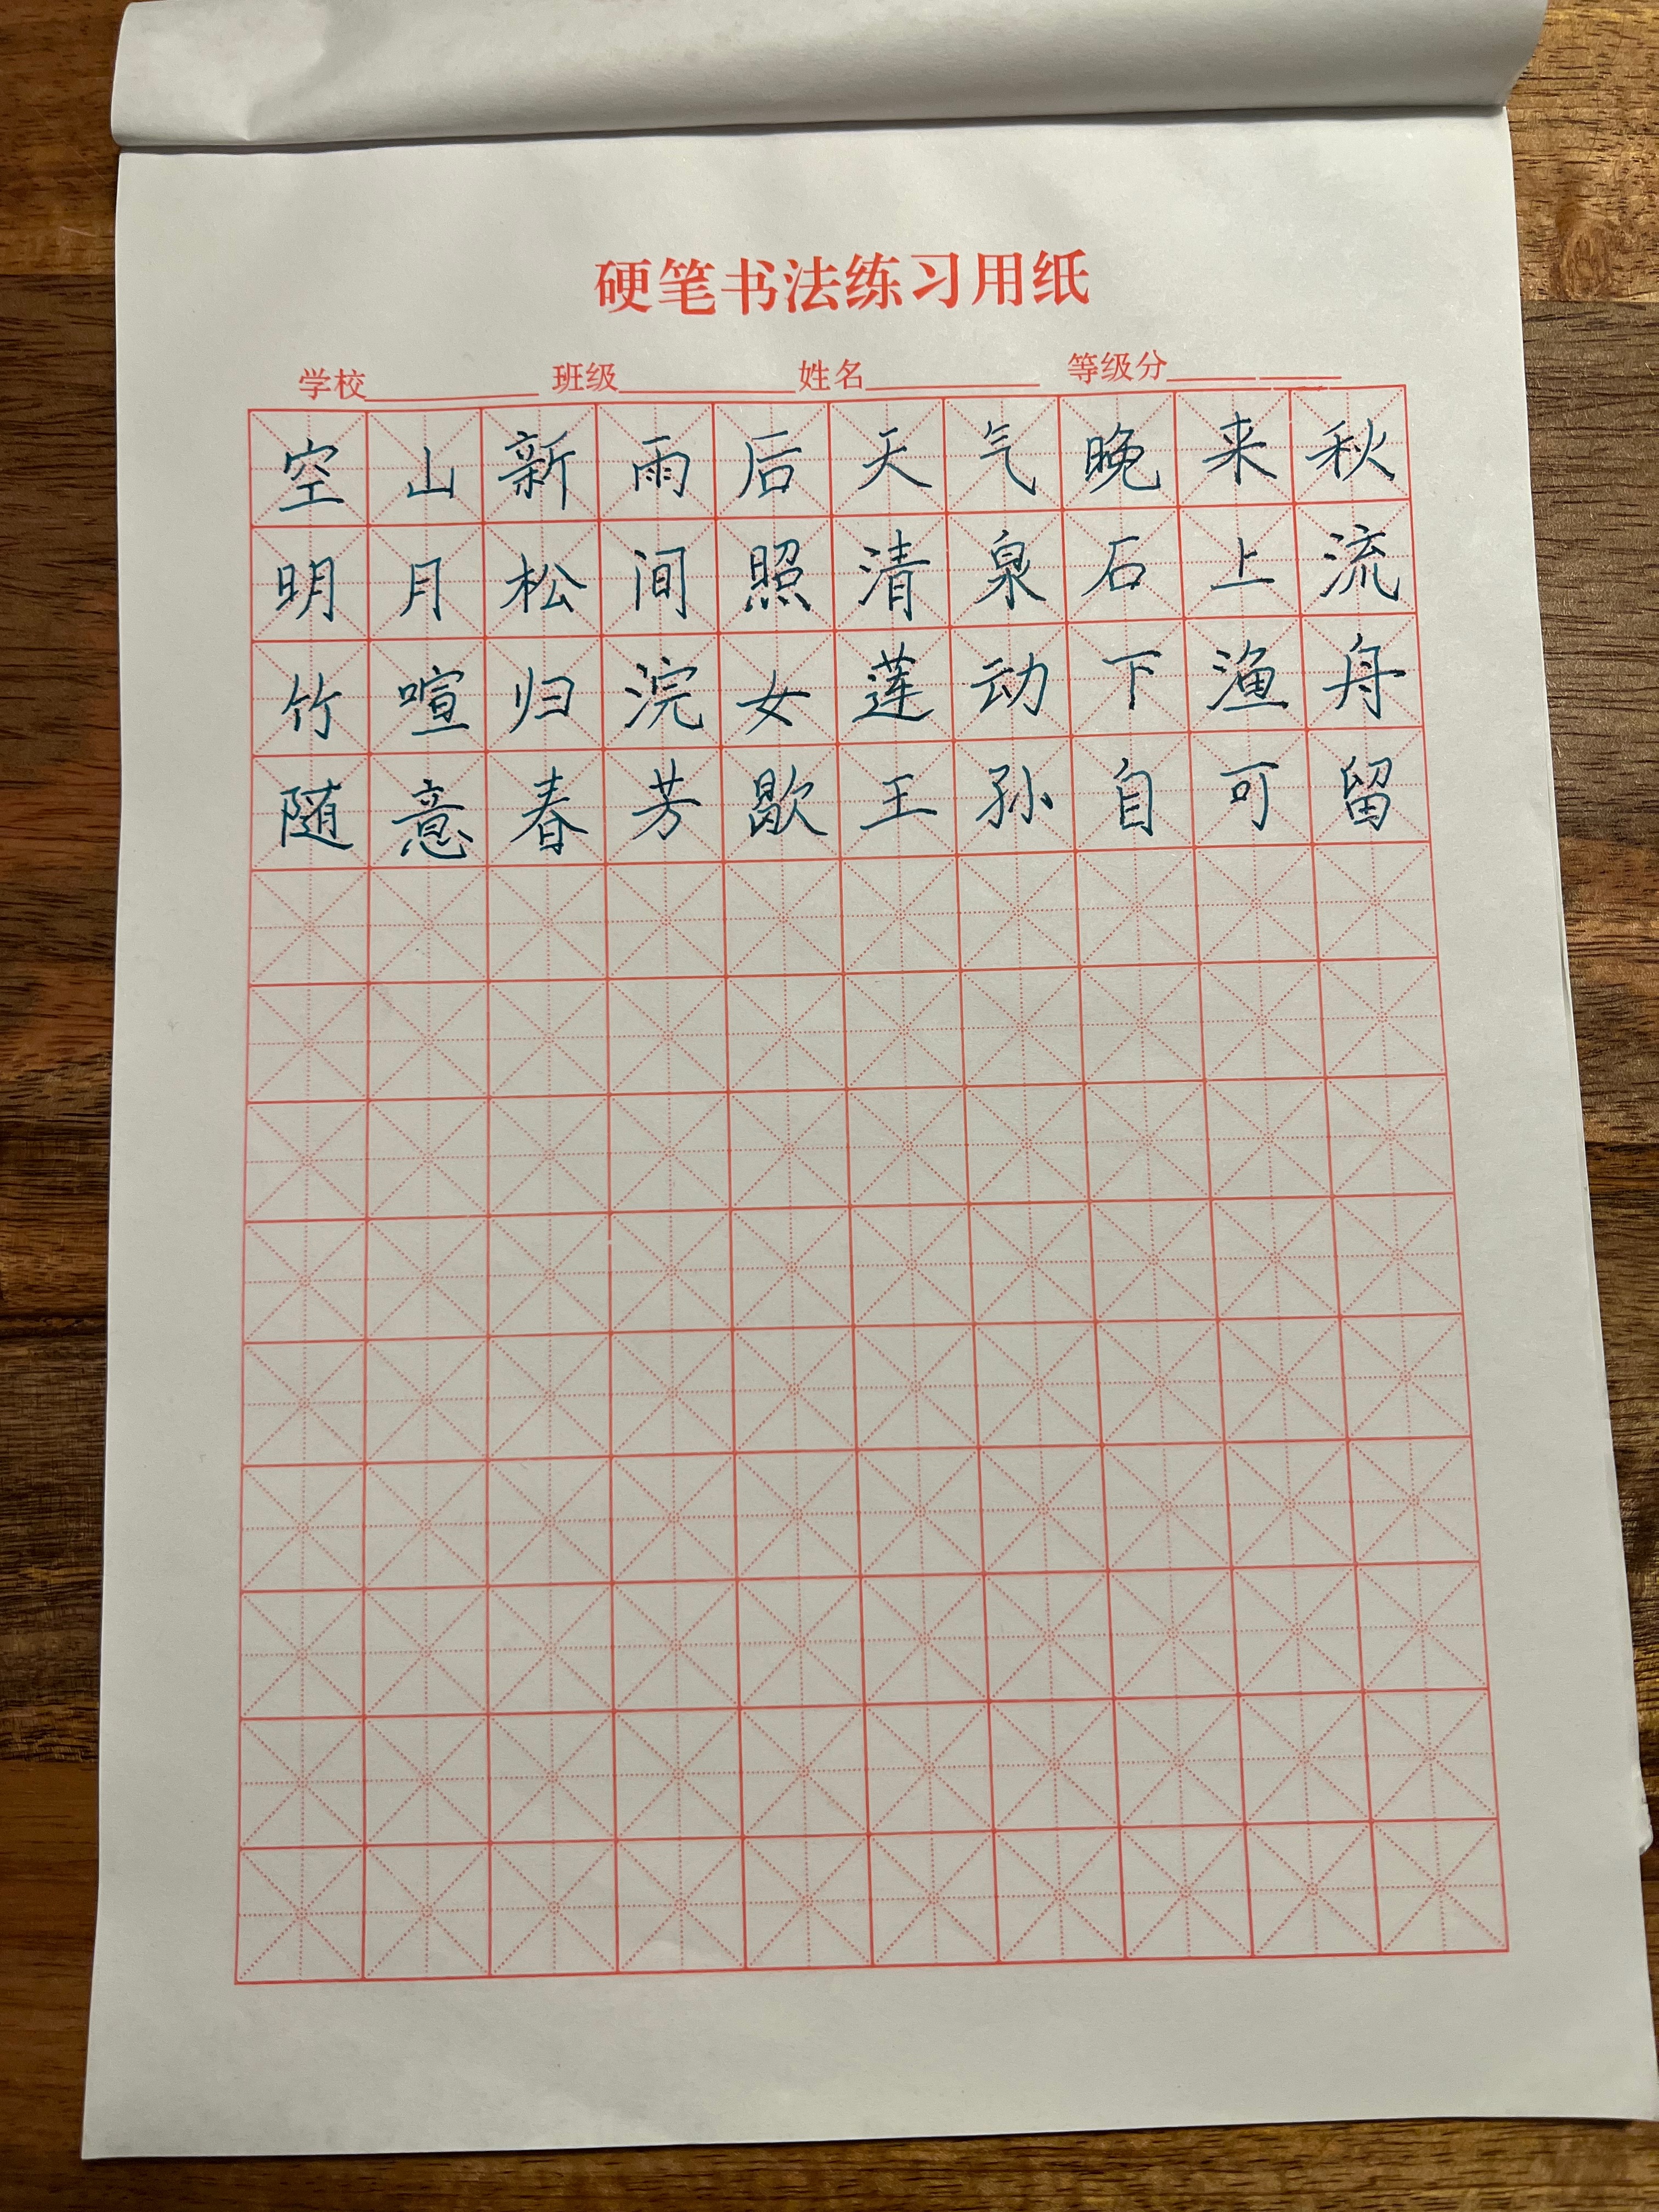 硬笔书法练习用纸
学校 班级 姓名 等级分
空山新雨后天气晚来秋
明月松间照清泉石上流
竹喧归浣女莲动下渔舟
随意春芳歇王孙自可留